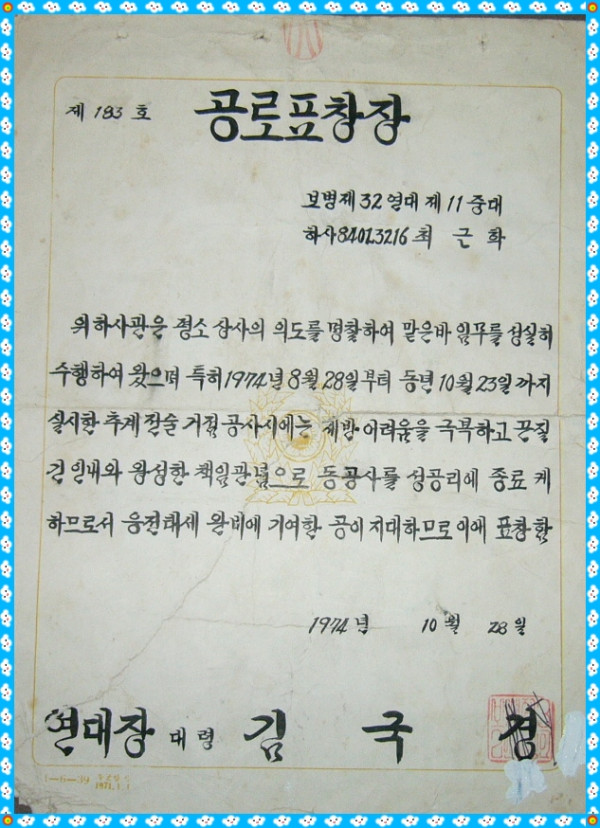 제 183 호
공로표창장
보병제32연대 제11중대
하사84013216 최 근 화
위하사관은 평소 상사의 의도를 명찰하여 맡은바 임무를 성실히
수행하여 왔으며 특히 1974년 8월 28일부터 동년 10월 23일 까지
실시한 추계 전술 거점 공사시에는 제반 어려움을 극복하고 끈질
긴 인내와 왕성한 책임관념으로 동공사를 성공리에 종료 케
하므로서 응전태세 완비에 기여한 공이 지대하므로 이에 표창함
1974년 10월 28일
연대장 대령 김 국 경